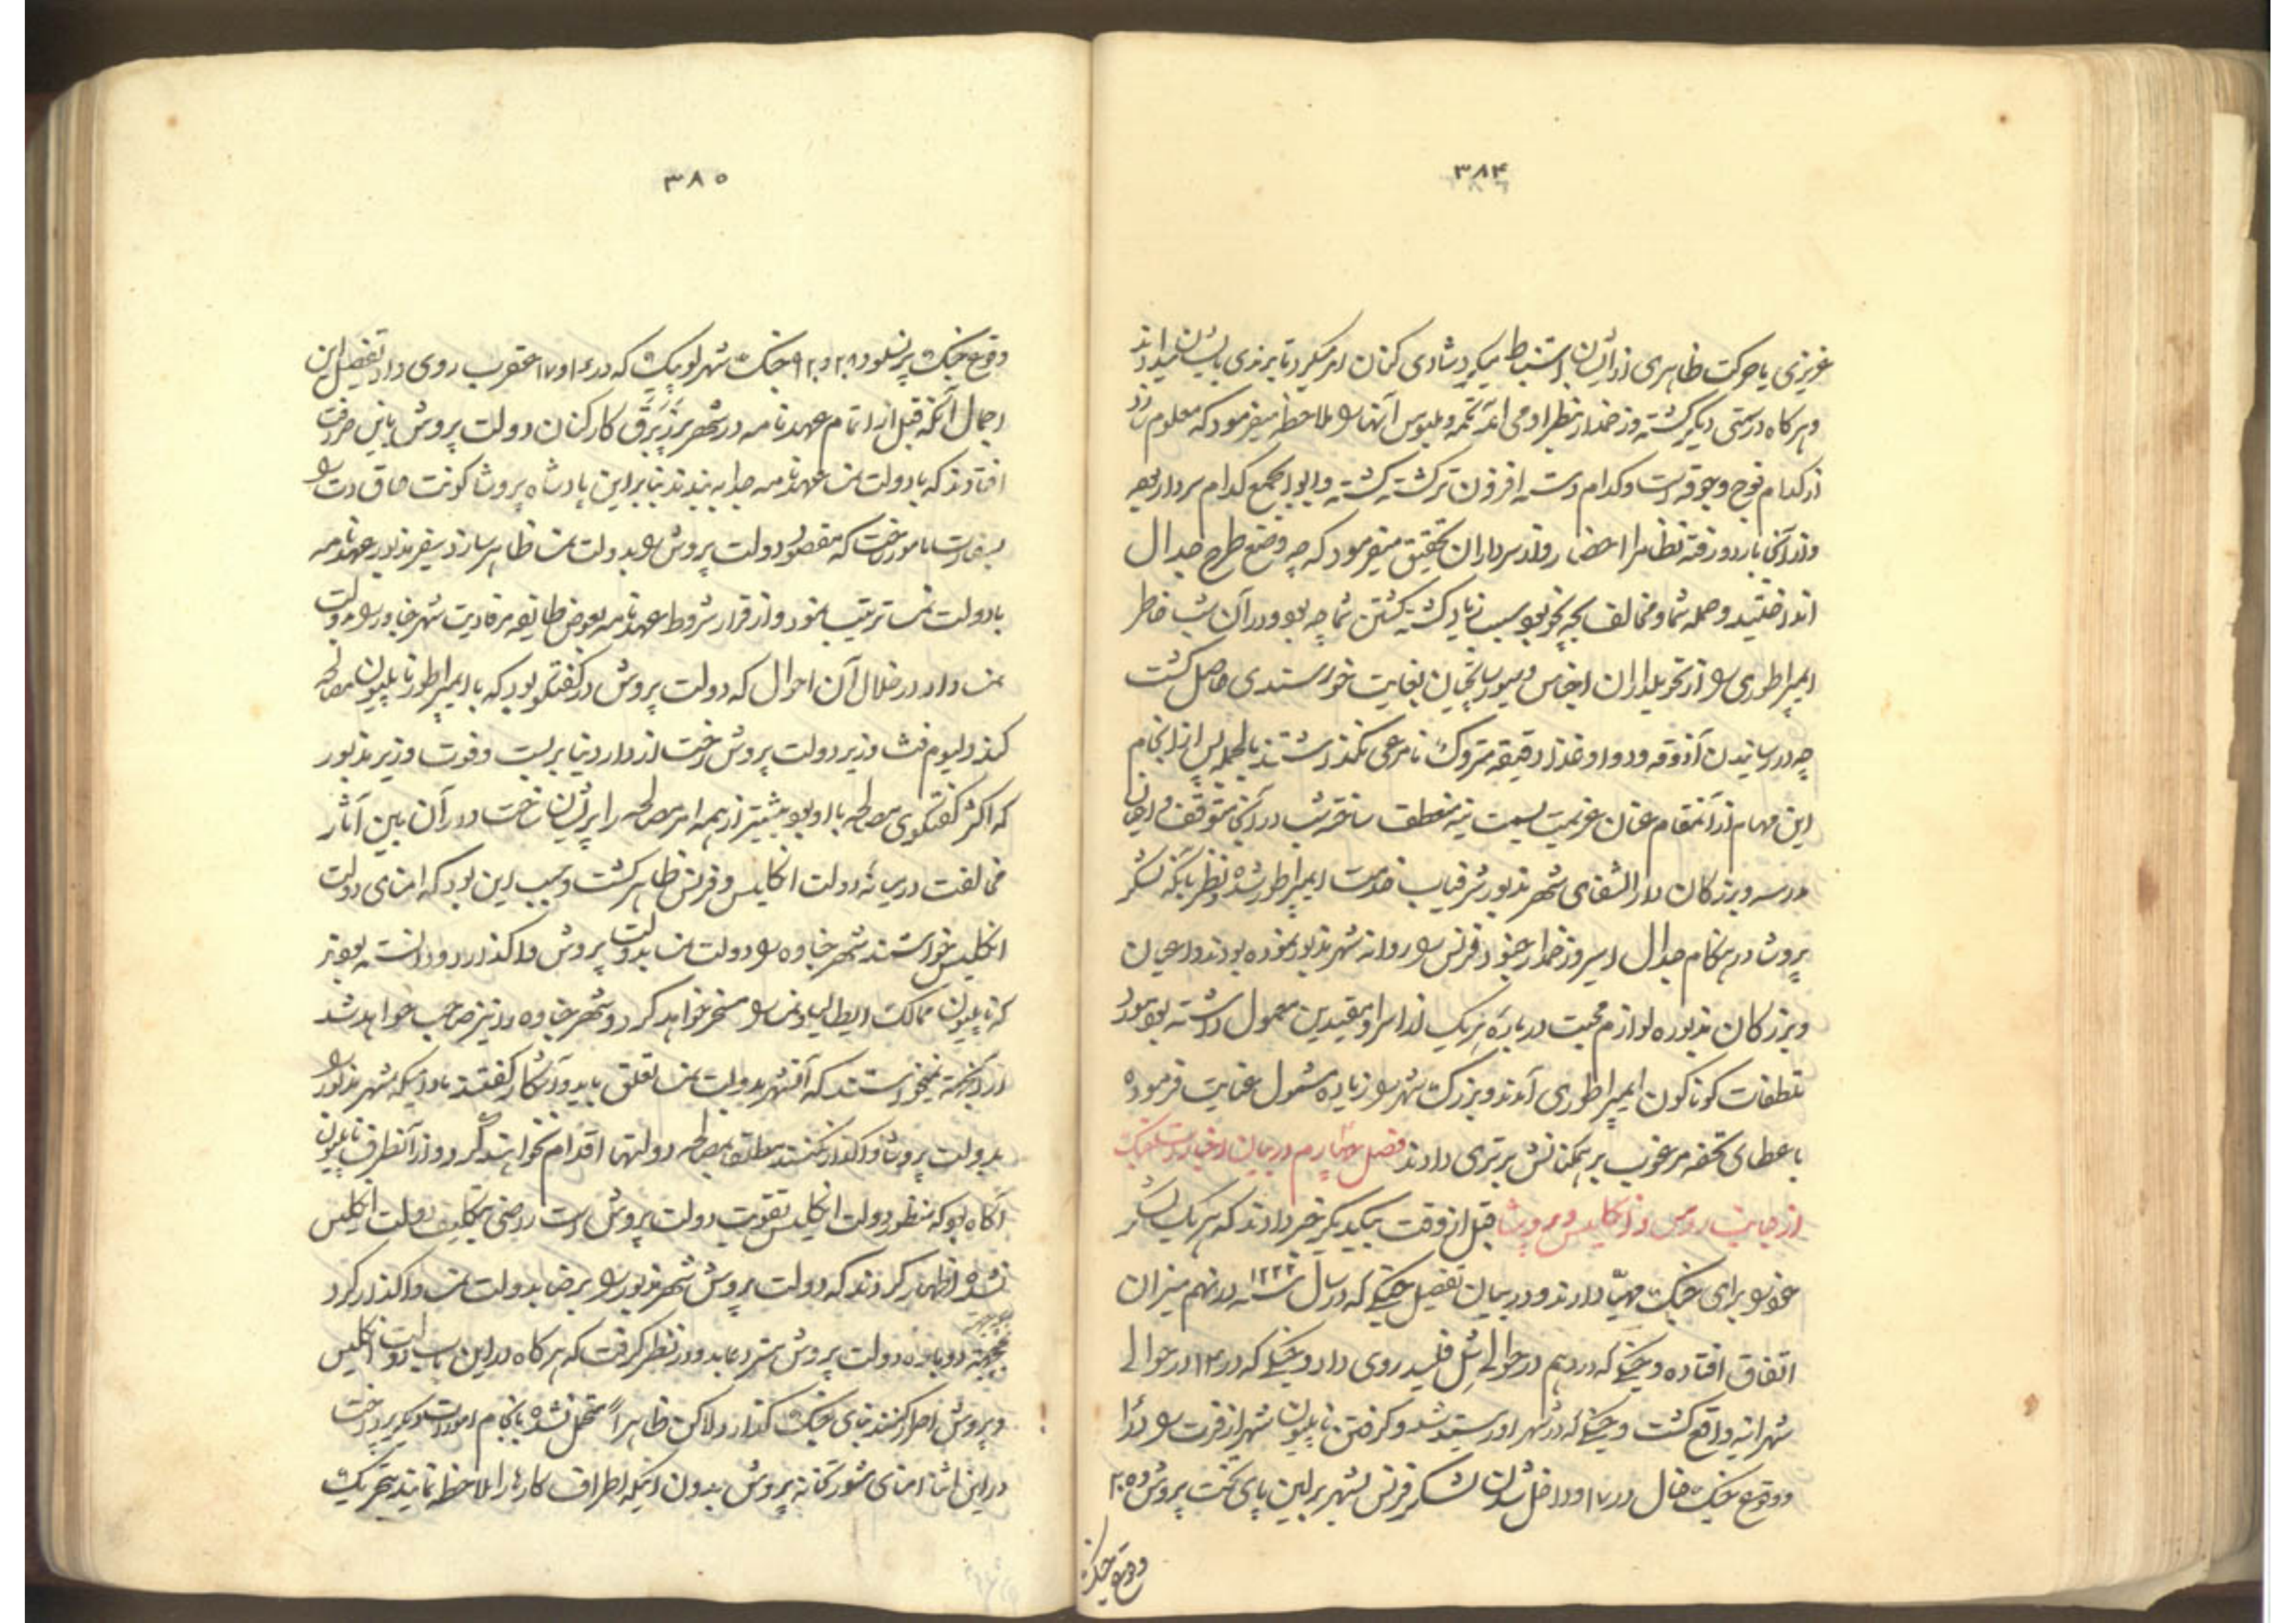 ۳۸۴
عزیزی یا حرکت ظاهری از ایشان استنباط میکرد شادی کنان امر میکرد تا برندی بایشان میدادند
و هر کاه در سمتی دیگر کشته و زخمدار بنظر او می آمد تکمه و ملبوس آنها را ملاحظه میفرمود که معلوم سازد
از کدام فوج و جوقه است و کدام دسته افزون تر کشته کشته و ابواجمع کدام سردار بوده
و از آنجا باردو رفته نظام را احضار و از سرداران تحقیق میفرمود که چه وضع طرح جدال
انداختید و حمله شما و مخالف بچه نحو بود سبب زیاد کشته کشتن شما چه بود و در آن شب خاطر
ایمپراطوری را از تحویلداران اجناس و سیورساتچیان بغایت خورسندی حاصل کشت
چه در رسانیدن آذوقه و دوا و غذا دقیقه متروک نامرعی نگذاشتند بالجمله پس از انجام
این مهام از آنمقام عنان عزیمت بسمت ینه منعطف ساخته شب در آنجا متوقف و اعیان
مدرسه و بزرکان دارالشفای شهر مذبور شرفیاب خدمت ایمپراطور شده و نظر باینکه لشکر
پروشا در هنکام جدال اسیر و زخمدار جنود فرنس را روانه شهر مذبور نموده بودند و اعیان
و بزرکان مذبوره لوازم محبت در باره هر یک از اسرا و مقیدین معمول داشته بودند مورد
تلطفات کوناکون ایمپراطوری آمدند و بزرک شهر را زیاده مشمول عنایت فرموده
باعطای تحفه مرغوب بر همکنانش برتری دادند فصل چهارم در بیان اخبارات جنک
از جانب روس و انکلیس و پروشا قبل از وقت بیکدیگر خبر دادند که هر یک لشکر
خود را برای جنک مهیّا دارند و در بیان تفصیل جنکی که در سال سنه ۱۲۲۲ در نهم میزان
اتفاق افتاده و جنکی که در دهم در حوالی شل فلید روی داد و جنکی که در ۱۴ در حوالی
شهر انیه واقع کشت و جنکی که در شهر اورستید شد و کرفتن ناپلیون شهر ازفرت را در ۱۶
و وقوع جنک هال در ۱۷ و داخل شدن لشکر فرنس بشهر برلین پای تخت پروش در ۲۵
وقوع جنک
۳۸۵
وقوع جنک پرنسلو در ۲۸ و ۲۹ جنک شهر لوبیک که در ۱۶ و ۱۷ عقرب روی داد تفصیل این
اجمال آنکه قبل از اتمام عهدنامه در شهر پرزبرق کارکنان دولت پروش باین صرافت
افتادند که با دولت نمسا عهدنامه جدا به بندند بنابر این پادشاه پروشا کونت هاق دت را
بسفارت مامور ساخت که مقصود دولت پروش را بدولت نمسا ظاهر سازد سفیر مذبور عهدنامه
با دولت نمسا ترتیب نمود و از قرار شروط عهدنامه بعوض طایفه مرقادیت شهر خاور را بدولت
نمسا داد در خلال آن احوال که دولت پروش در کفتکو بود که با ایمپراطور ناپلیون مصالحه
کند ولیوم فث وزیر دولت پروش رخت از دار دنیا بربست و فوت وزیر مذبور
که اکثر کفتکوی مصالحه با او بود بیشتر از همه امر مصالحه را پریشان ساخت و در آن بین آثار
مخالفت در میانه دولت انکلیس و فرنس ظاهر کشت و سبب این بود که امنای دولت
انکلیس خواستند شهر خاوه را دولت نمسا بدولت پروش واکذارد و دانسته بودند
که ناپلیون ممالک ایطالیا و نمسا را مسخر خواهد کرد و شهر خاوه را نیز صاحب خواهد شد
از اینجهة نمیخواستند که آنشهر بدولت نمسا تعلق یابد و آشکار کفتند مادامیکه شهر مذبور را
بدولت پروشا واکذار نکنند مطلقا بمصالحه دولتها اقدام نخواهند کرد و از آنطرف ناپلیون
آکاه بود که منظور دولت انکلیس تقویت دولت پروش است راضی بتکلیف دولت انکلیس
نشده اظهار کردند که دولت پروش شهر مذبور را برضا بدولت نمسا واکذار کرد
دوباره دولت پروش مسترد نماید و در نظر کرفت که هر کاه در این باب دولت انکلیس
و پروش اصرار کنند بنای جنک کذارد ولاکن ظاهراً متحمل نشده بانجام امورات دیگر پرداخت
در این اثنا امنای شورتخانه پروش بدون اینکه اطراف کار را ملاحظه نمایند بتحریک